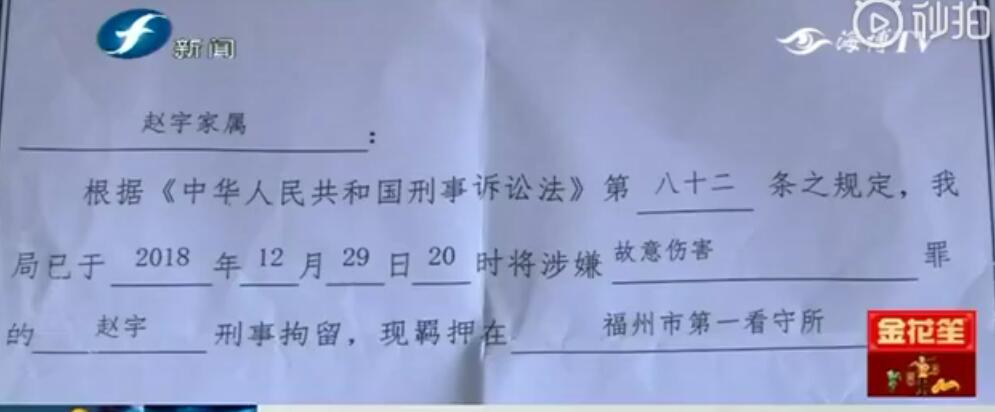 新闻
海博TV
秒拍
赵宇家属:
根据《中华人民共和国刑事诉讼法》第 八十二 条之规定,我
局已于 2018 年 12 月 29 日 20 时将涉嫌 故意伤害 罪
的 赵宇 刑事拘留,现羁押在 福州市第一看守所
金花生